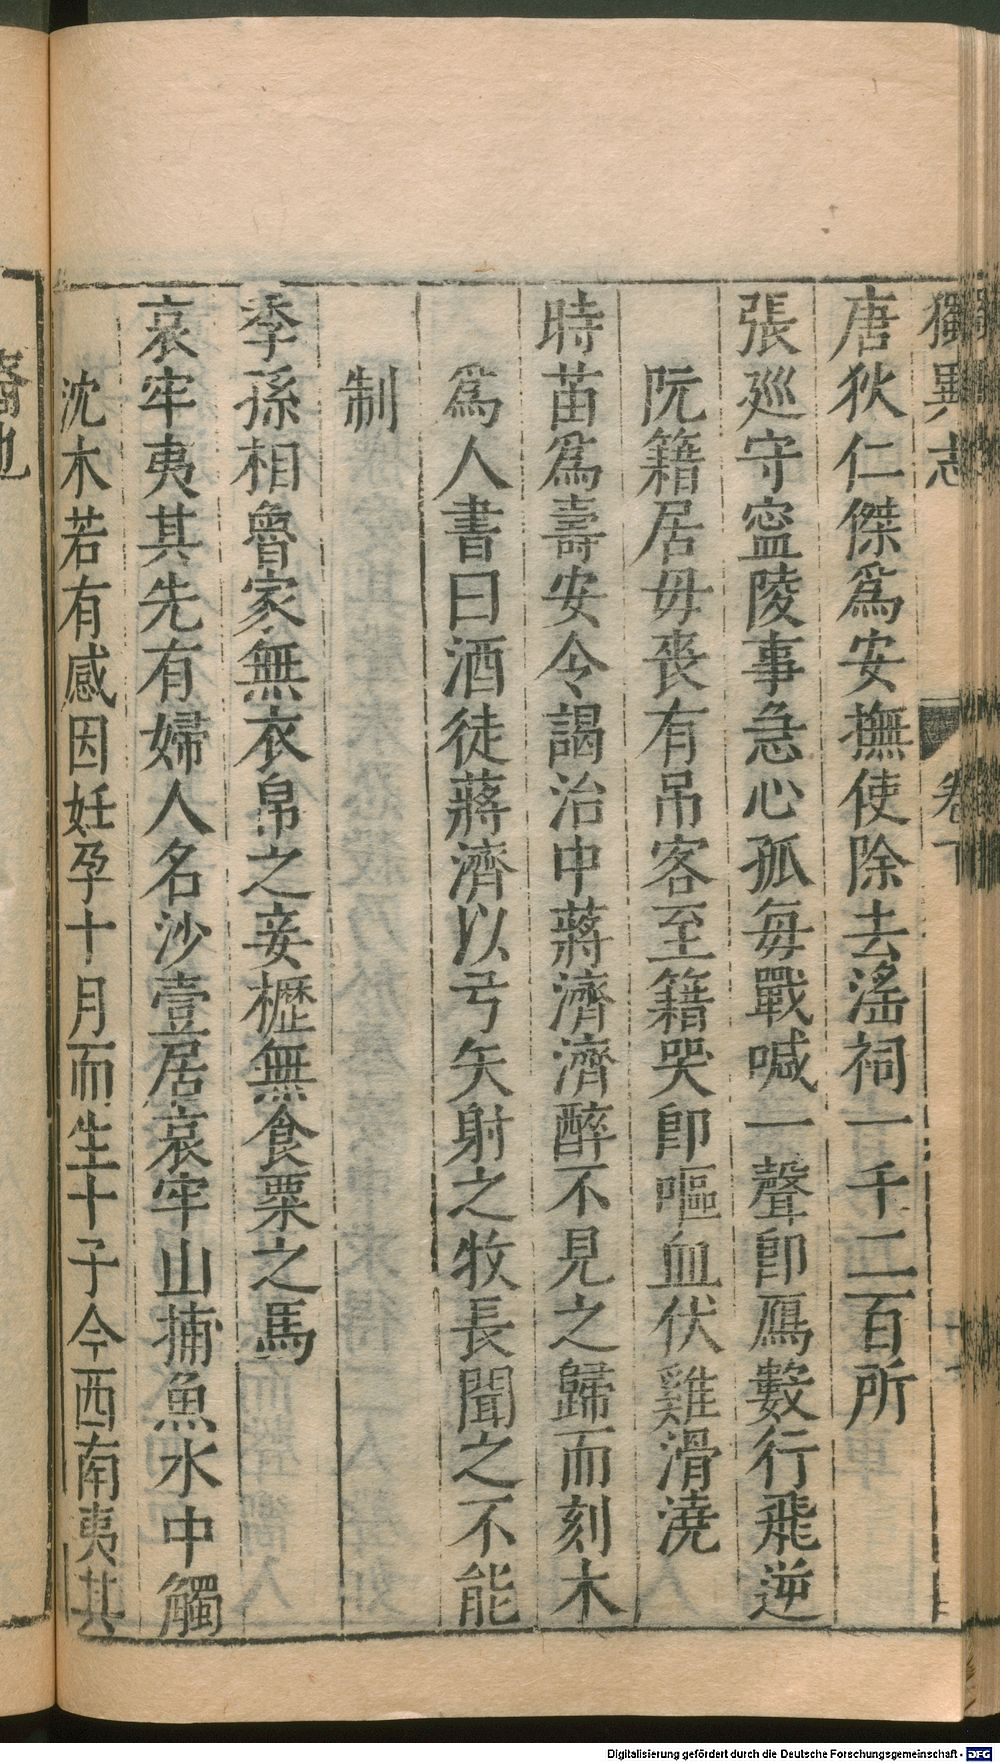 獨異志
卷下
唐狄仁傑爲安撫使除去滛祠一千二百所
張廵守寍陵事急心孤每戰喊一聲卽鴈數行飛逆
阮籍居毋喪有吊客至籍哭卽嘔血伏雞滑澆
時苗爲壽安令謁治中蔣濟濟醉不見之歸而刻木
爲人書曰酒徒蔣濟以弓矢射之牧長聞之不能
制
季孫相魯家無衣帛之妾櫪無食粟之馬
哀牢夷其先有婦人名沙壹居哀牢山捕魚水中觸
沈木若有感因妊孕十月而生十子今西南夷其
裔也
Digitalisierung gefördert durch die Deutsche Forschungsgemeinschaft - DFG